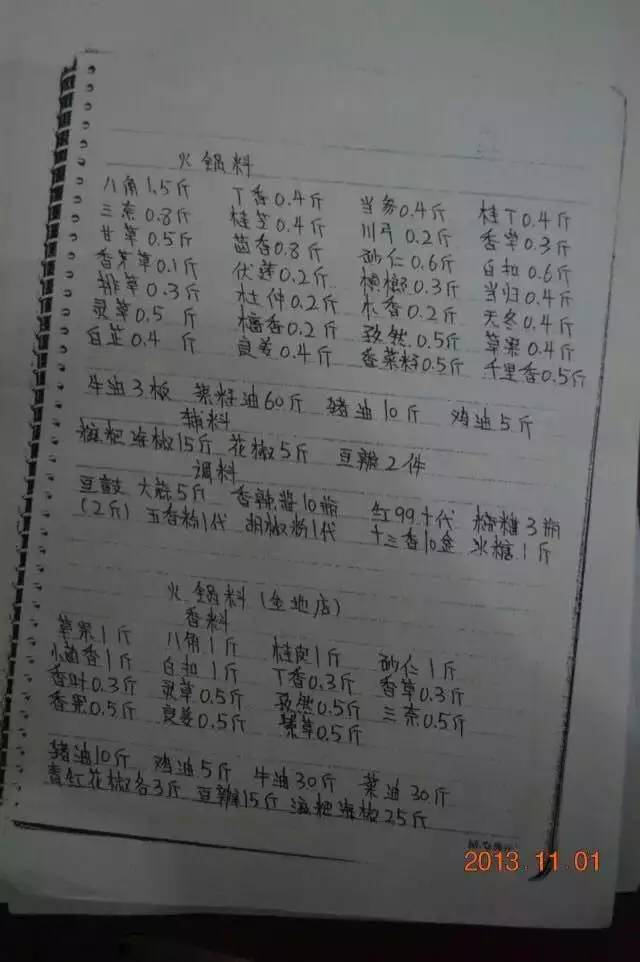 火锅料
八角1.5斤 丁香0.4斤 当务0.4斤 桂丁0.4斤
三奈0.8斤 桂芝0.4斤 川弓0.2斤 香草0.3斤
甘草0.5斤 茴香0.8斤 砂仁0.6斤 白扣0.6斤
香茅草0.1斤 伏苓0.2斤 槟榔0.3斤 当归0.4斤
排草0.3斤 杜仲0.2斤 木香0.2斤 天冬0.4斤
灵草0.5斤 檀香0.2斤 孜然0.5斤 草果0.4斤
白芷0.4斤 良姜0.4斤 香菜籽0.5斤 千里香0.5斤
牛油3板 菜籽油60斤 猪油10斤 鸡油5斤
辅料
糍粑海椒15斤 花椒5斤 豆瓣2件
调料
豆鼓 大蒜5斤 香辣酱10瓶 红99十代 糟3瓶
(2斤) 五香粉1代 胡椒粉1代 十三香10盒 冰糖1斤
火锅料(金地店)
香料
草果1斤 八角1斤 桂皮1斤 砂仁1斤
小茴香1斤 白扣1斤 丁香0.3斤 香草0.3斤
香叶0.3斤 灵草0.5斤 孜然0.5斤 三奈0.5斤
香果0.5斤 良姜0.5斤 草0.5斤
猪油10斤 鸡油5斤 牛油30斤 菜油30斤
青红花椒各3斤 豆瓣15斤 滋粑海椒25斤
2013.11.01